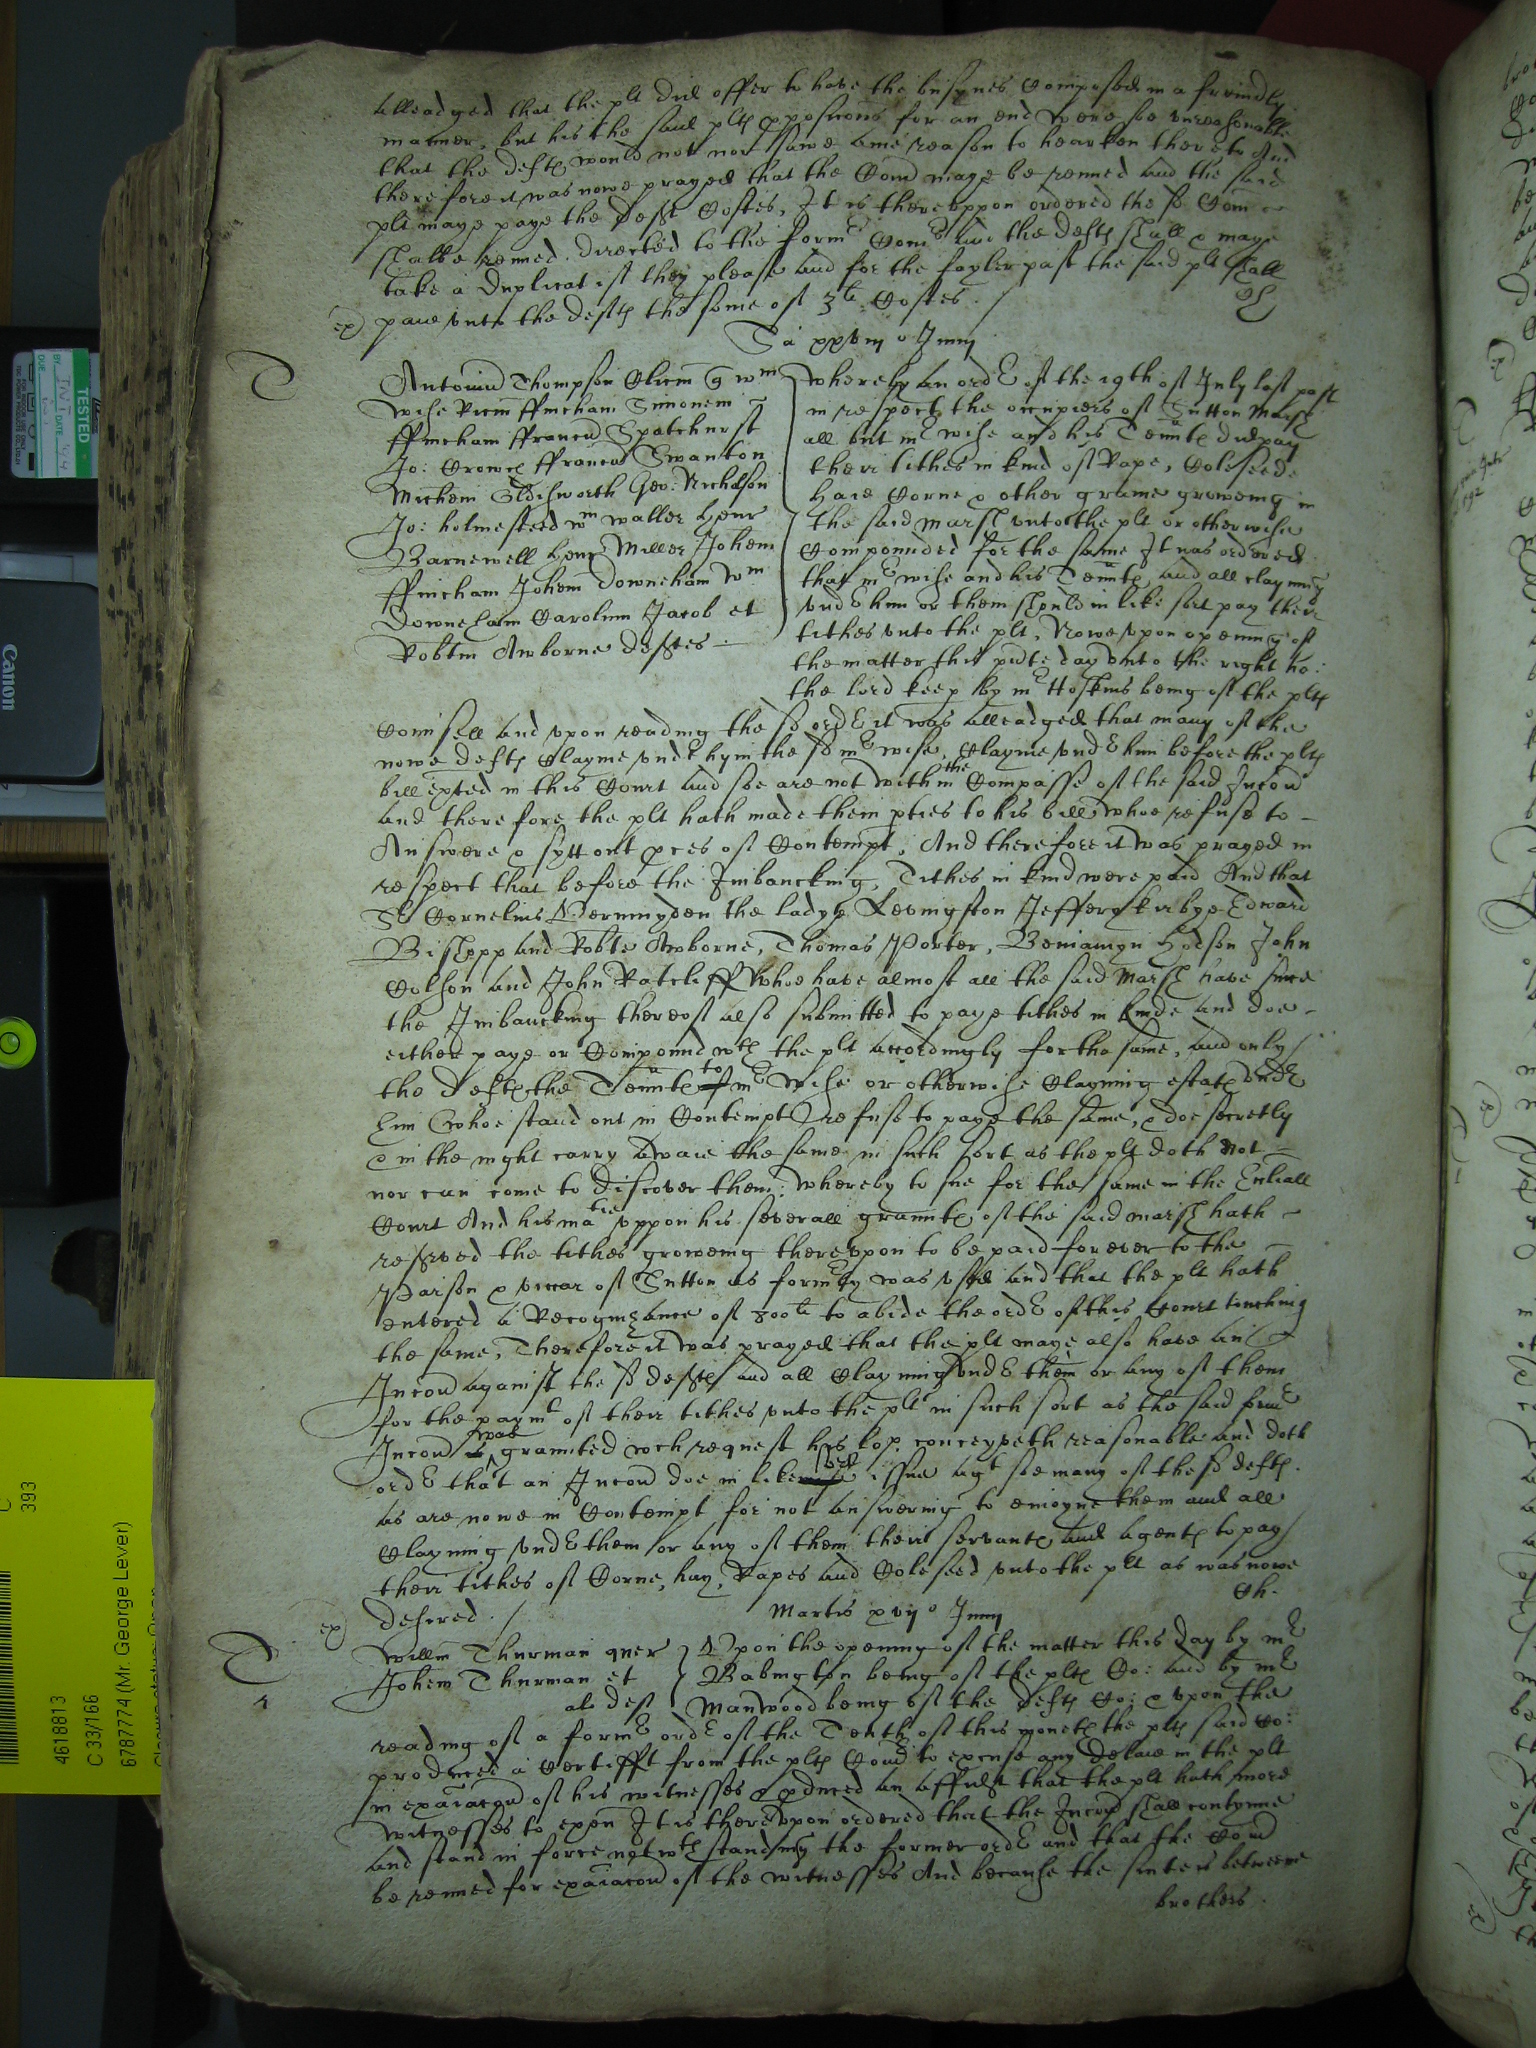 alleadged that the plt did offer to have the busynes Composed in a freindly
manner, but his the said plts pposicons for an end were soe unreasonable
that the defts would not nor sawe anie reason to hearken thereto And
therefore it was nowe prayed that the Comd maye be renued and the said
plt maye paye the deft Costes, It is thereuppon ordered the sd Com
shalbe renued directed to the form Comrs and the defts shall & maye
take a Duplicat if they please and for the fayler past the said plt shall
paie unto the defts the some of 3li Costes /
Sa xxviijo Junij
Antonius Thompson Clicus q wm
Wise Ricum ffincham Simonem
ffincham ffrancu Spatchurst
Jo: Crowe ffrancu Swanton
Michem Oldisworth Geo: Nicholson
Jo: holmesteed wm waller henr
Barnewell henr Miller Johem
ffincham Johem Downeham wm
Downeham Carolum Jacob et
Robtm Awborne deftes
whereby an order of the 19th of July last past
in respect the occupiers of Sutton Marsh
all but mr wise and his Tennts did pay
their tithes in kind of Rape, Coleseede
haie Corne & other graine groweing in
the said marsh unto the plt or otherwise
Compounded for the same It was ordered
that mr wise and his Tennts and all clayming
under him or them should in like sort pay their
tithes unto the plt, Nowe upon opening of
the matter this pnte day unto the right ho:
the lord keep by mr Hoskins being of the plts
Counsell and upon reading the sd order it was alleadged that many of the
nowe defts Clayme under hym the sd mr wise, Clayme under him before the plts
bill exted in this Court and soe are not within the Compasse of the said Incon
and therefore the plt hath made them pties to his bill whoe refuse to
Answere & sytt out pces of Contempt, And therefore it was prayed in
respect that before the Imbancking, Tithes in kind were paid And that
Sr Cornelius Vermuyden the ladye Levingston Jeffery kirbye Edward
Bishopp and Robte Awborne, Thomas Porter, Beniamyn hodson John
Colson and John Ratcliff whoe have almost all the said Marsh have since
the Imbancking thereof also submitted to paye tithes in kinde and doe
either paye or Compound wth the plt accordingly for the same, and only
the defts the Tennts to mr Wise or otherwise Clayming estate under
him (whoe stand out in Contempt) refuse to paye the same, & doe secretly
& in the night carry awaie the same in such sort as the plt doth not
nor can come to discover them, whereby to sue for the same in the Eccliall
Court And his matie uppon his severall graunts of the said marsh hath
reserved the tithes groweing thereupon to be paid forever to the
Parson & vicar of Sutton as formly was used and that the plt hath
entered a Recognizance of 800li to abide the order of this Court touching
the same, Therefore it was prayed that the plt maye also have an
Incon against the sd defts and all Clayming under them or any of them
for the paymt of their tithes unto the plt in such sort as the said form
Incon was graunted wch request his lop conceyveth reasonable and doth
order that an Incon doe in like sort issue agt soe many of the sd defts
as are nowe in Contempt for not answering to enioyne them and all
Clayming under them or any of them their servants and agents to pay
their tithes of Corne, hay, Rapes and Coleseed unto the plt as was nowe
desired. /
Martis xvijo Junij
Willm Thurman quer
Johem Thurman et
al deft
Upon the opening of the matter this day by mr
Babington being of the plts Co: and by mr
Manwood being of the defts Co: & upon the
reading of a former order of the Tenth of this moneth the plts said Co:
produced a Certifft from the plts Comr to excuse any delaie in the plt
in exaiacon of his witnesses & pduced an affidt that the plt hath more
witnesses to exen It is thereupon ordered that the Incon shall contynue
and stand in force notwth standing the former order and that the Comd
be renued for exaiacon of the witnesses And because the suite is betweene
brothers
TESTED
Canon
C
393
4618813
C 33/166
6787774 (Mr. George Lever)